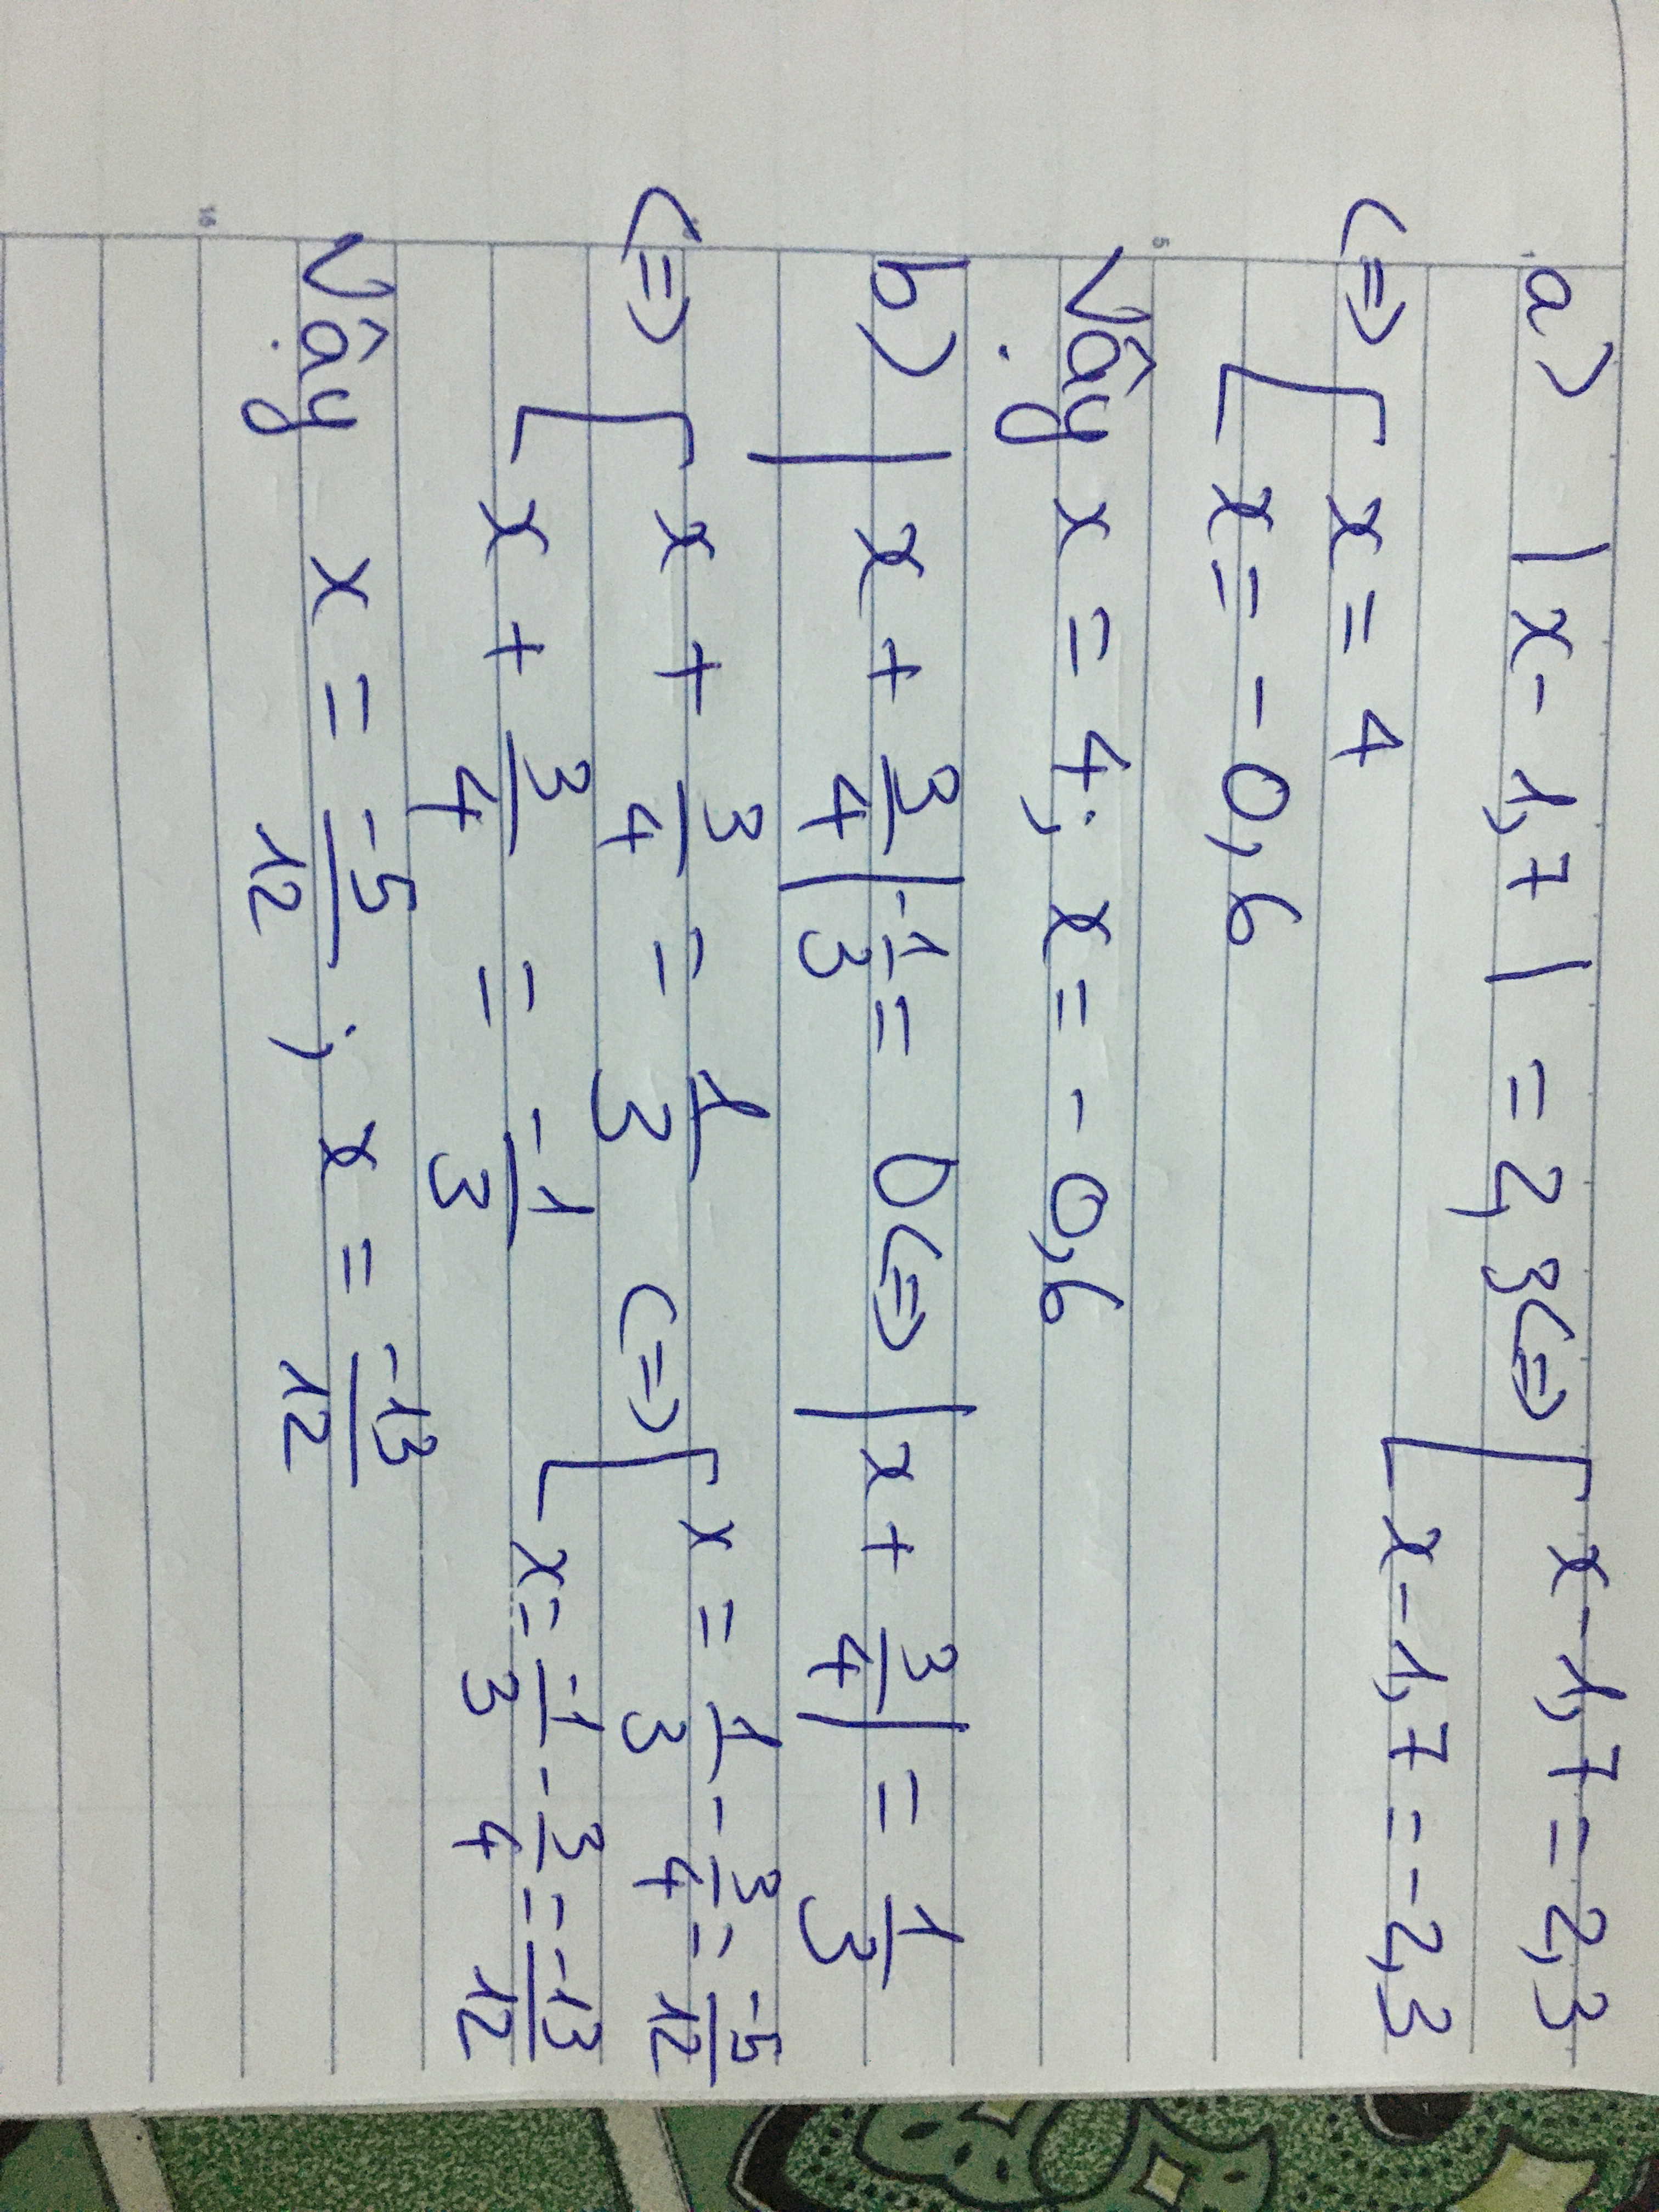 a) |x - 1,7| = 2,3 <=> [ x - 1,7 = 2,3
[ x - 1,7 = -2,3
<=> [ x = 4
[ x = -0,6
Vậy x = 4; x = -0,6
b) |x + 3/4| - 1/3 = 0 <=> |x + 3/4| = 1/3
<=> [ x + 3/4 = 1/3 <=> [ x = 1/3 - 3/4 = -5/12
[ x + 3/4 = -1/3 [ x = -1/3 - 3/4 = -13/12
Vậy x = -5/12 ; x = -13/12